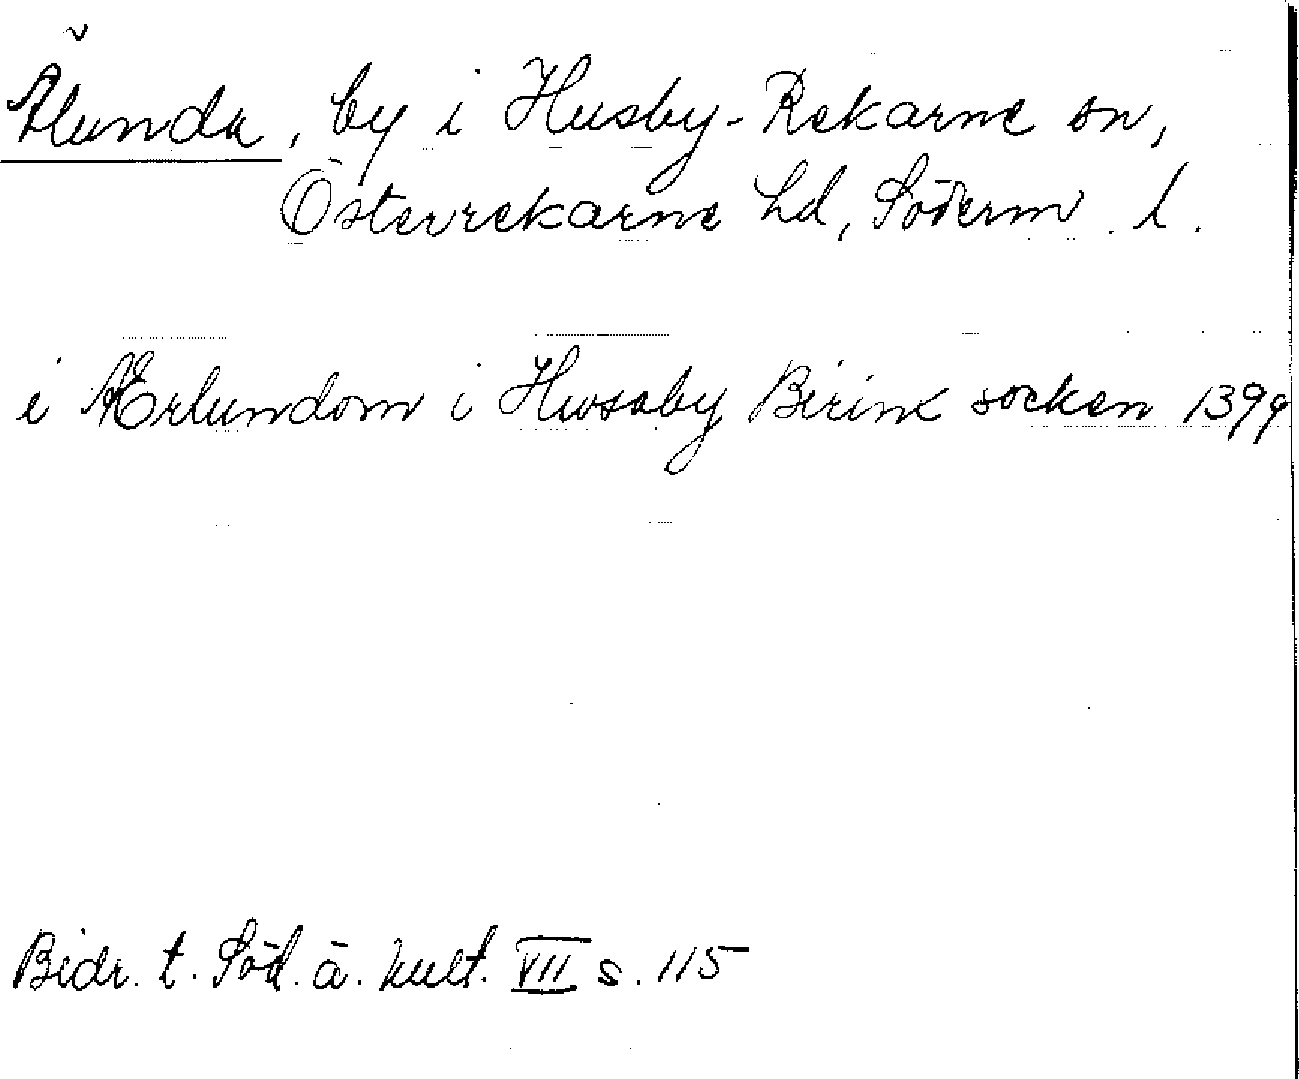 Ålunda, by i Husby-Rekarne sn,
Österrekarne hd, Söderm. l.
i Ærlundom i Hwsaby Birine socken 1399
Bidr. t. Söd. ä. kult. VII s. 115